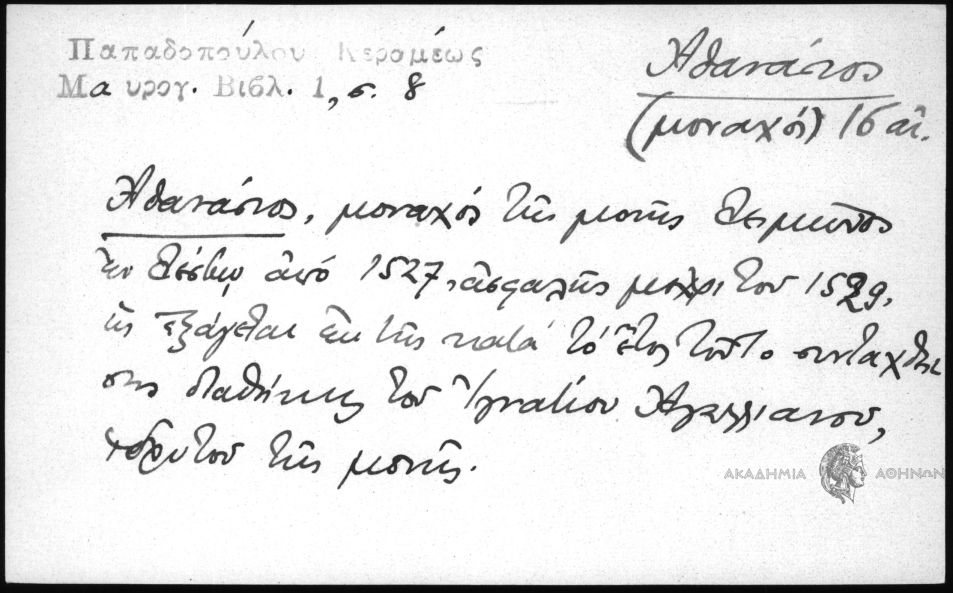 Παπαδοπούλου Κεραμέως
Μαυρογ. Βιβλ. 1, σ. 8
Ἀθανάσιος
(μοναχός) 16 αἰ.
Ἀθανάσιος, μοναχός τῆς μονῆς Λειμῶνος
ἐν Λέσβῳ ἀπό 1527, ἀσφαλῆς μέχρι τοῦ 1529,
ὡς ἐξάγεται ἐκ τῆς κατά τό ἔτος τοῦτο συνταχθεί
σης διαθήκης τοῦ Ἰγνατίου Ἀγαλλιανοῦ,
ἱδρυτοῦ τῆς μονῆς.
ΑΚΑΔΗΜΙΑ ΑΘΗΝΩΝ